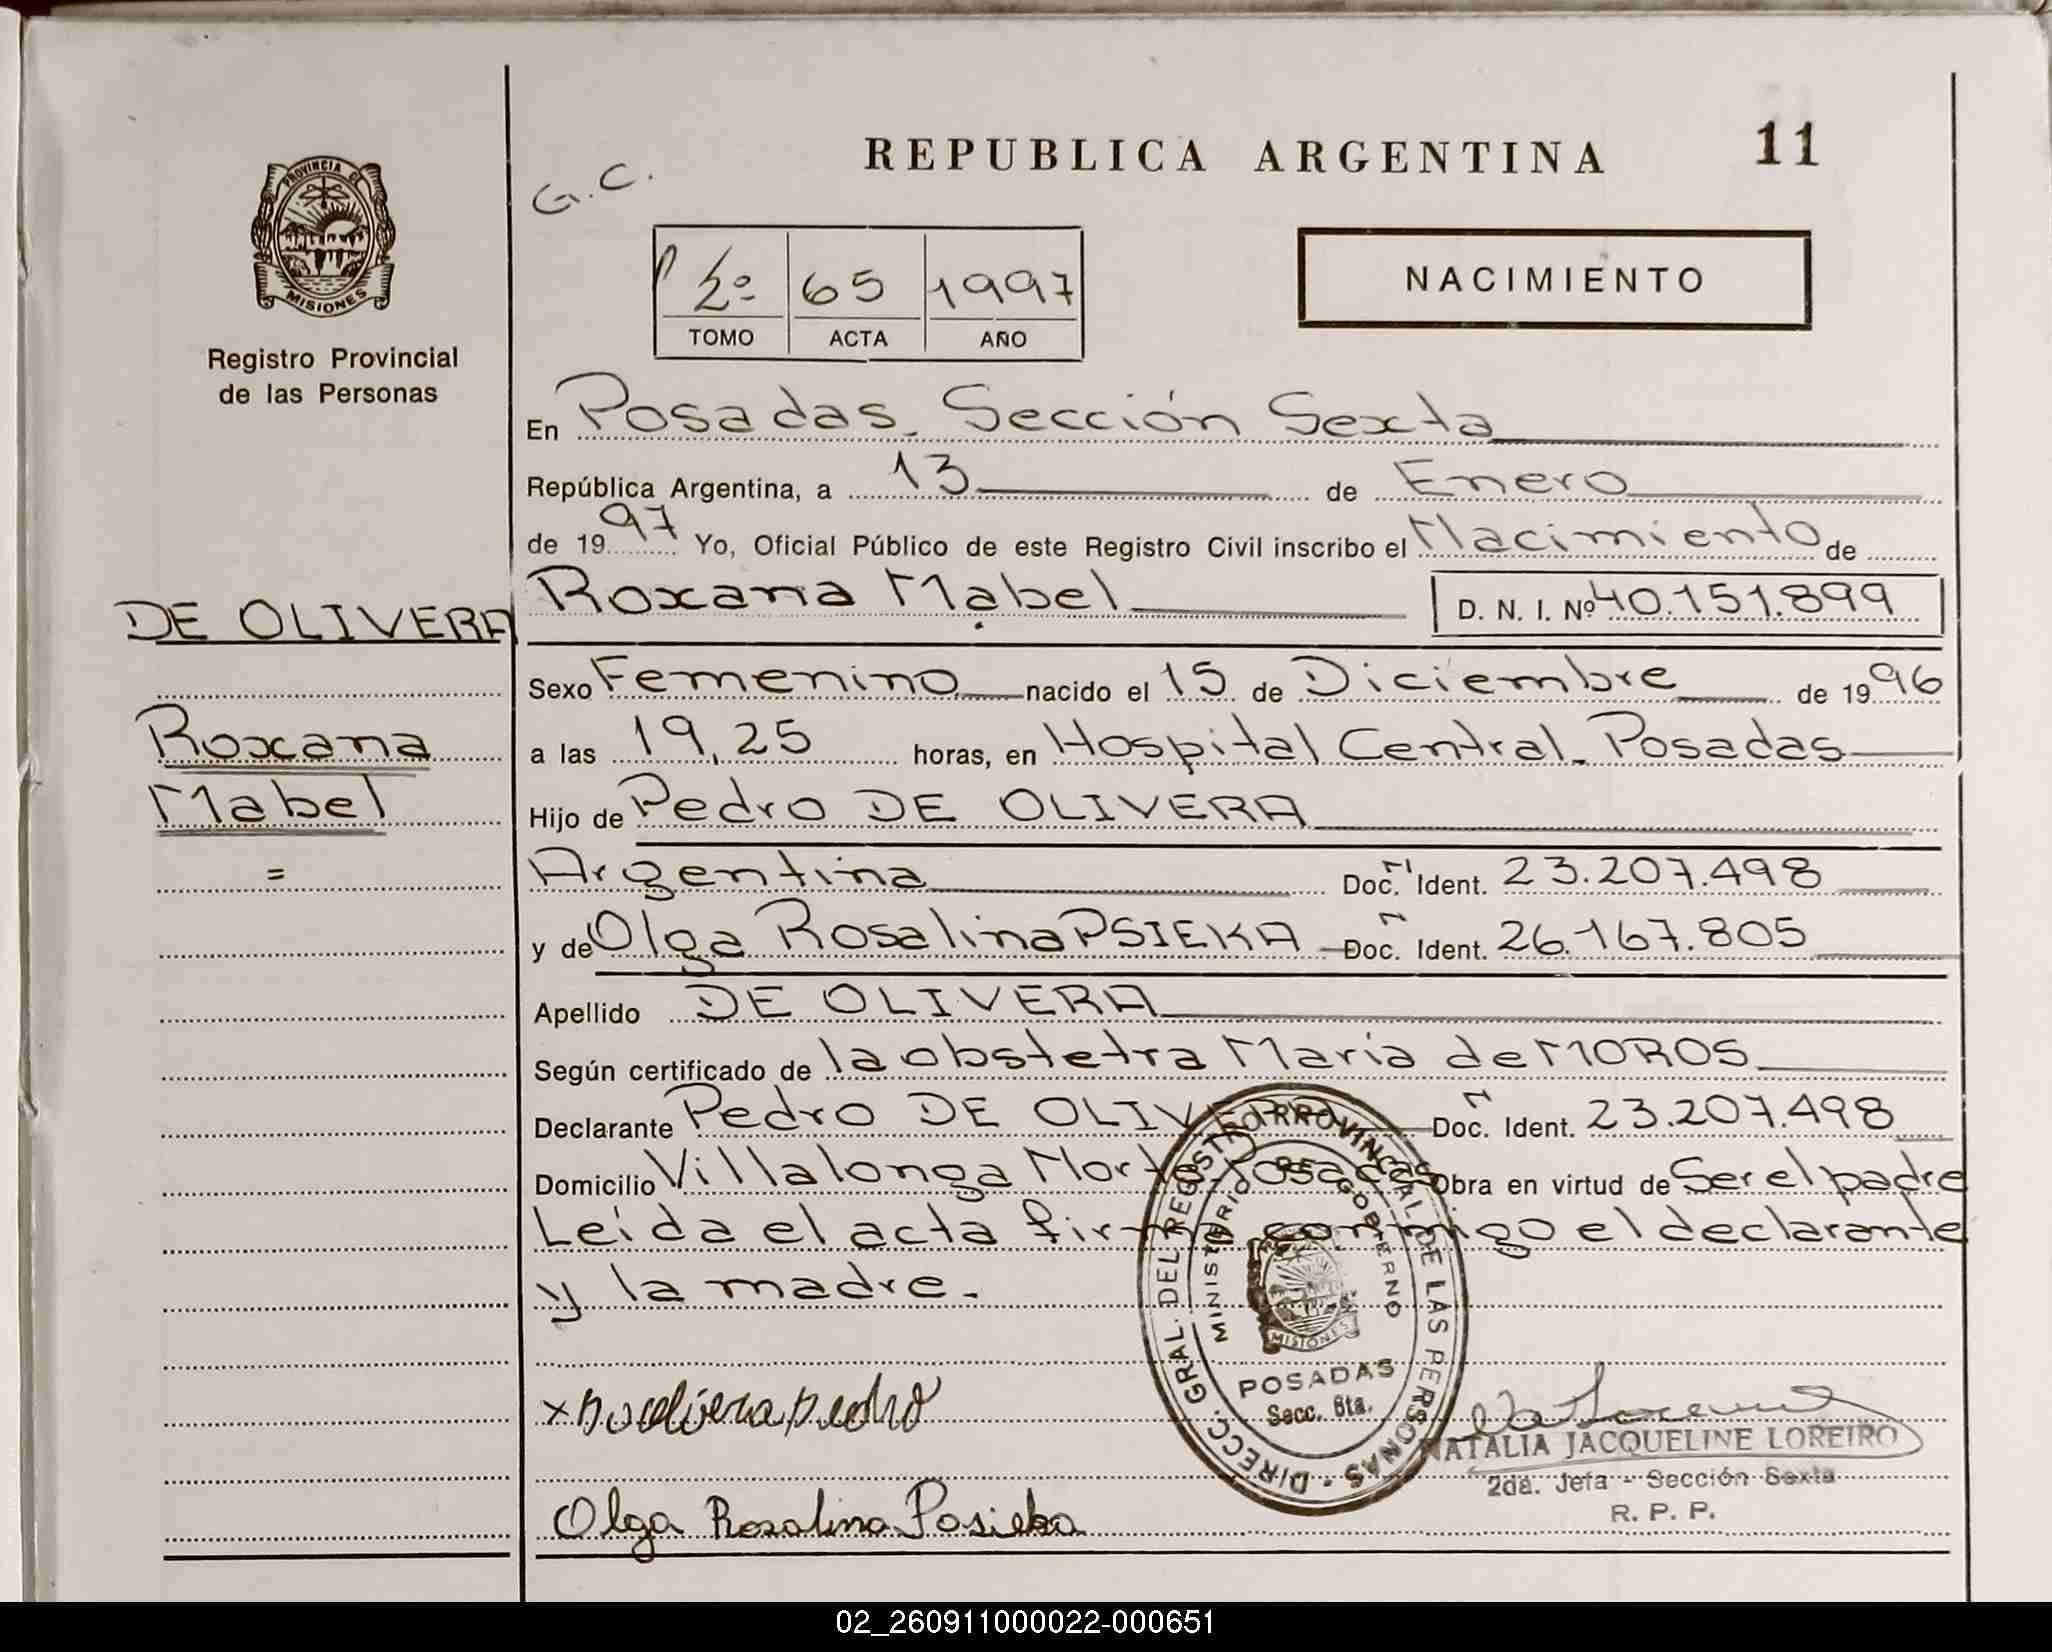 REPUBLICA ARGENTINA
11
G.C.
PROVINCIA DE
MISIONES
Registro Provincial
de las Personas
2º 65 1997
TOMO ACTA AÑO
NACIMIENTO
En Posadas. Sección Sexta
República Argentina, a 13 de Enero
de 1997 Yo, Oficial Público de este Registro Civil inscribo el Nacimiento de
DE OLIVERA
Roxana Mabel D. N. I. Nº 40.151.899
Sexo Femenino nacido el 15 de Diciembre de 1996
Roxana
a las 19,25 horas, en Hospital Central. Posadas
Mabel
Hijo de Pedro DE OLIVERA
=
Argentina Doc. Ident. 23.207.498
y de Olga Rosalina PSIEKA Doc. Ident. 26.167.805
Apellido DE OLIVERA
Según certificado de la obstetra Maria de MOROS
Declarante Pedro DE OLIVERA Doc. Ident. 23.207.498
Domicilio Villalonga Norte. Posadas Obra en virtud de Ser el padre
Leída el acta firma conmigo el declarante
y la madre.
DIRECC. GRAL. DEL REGISTRO PROVINCIAL DE LAS PERSONAS
MINISTERIO DE GOBIERNO
MISIONES
POSADAS
Secc. 6ta.
x De olivera pedro
NATALIA JACQUELINE LOREIRO
2da. Jefa - Sección Sexta
R. P. P.
Olga Rosalina Posieka
02_260911000022-000651